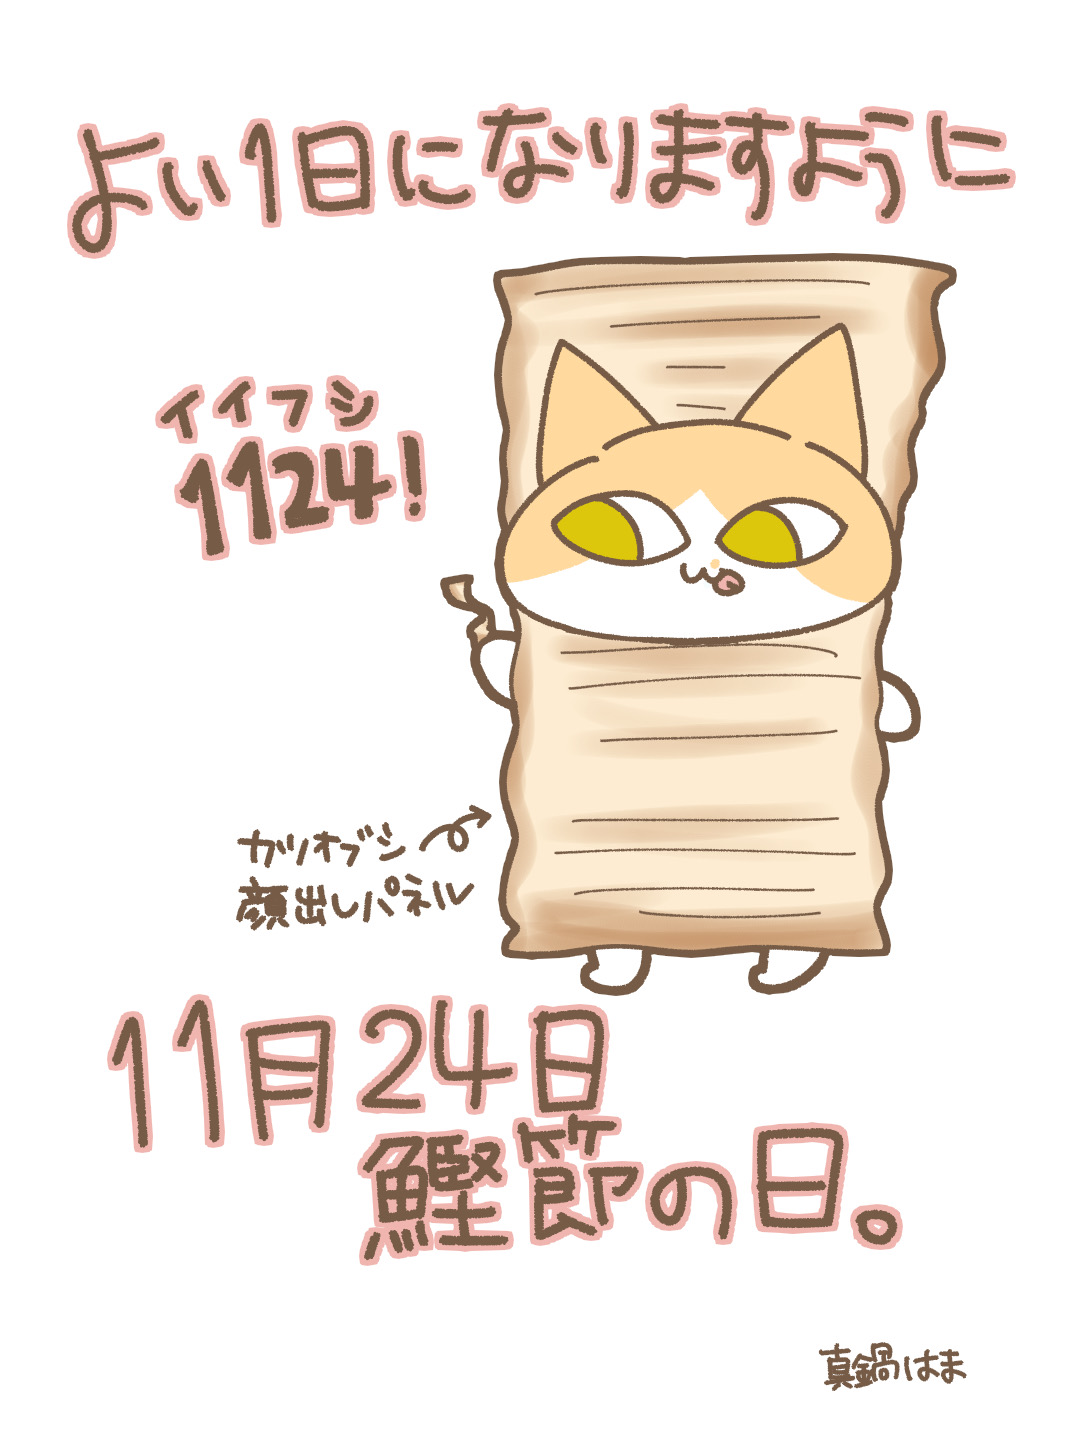 よい1日になりますように
イイフシ
1124!
カツオブシ
顔出しパネル
11月24日
鰹節の日。
真鍋はま